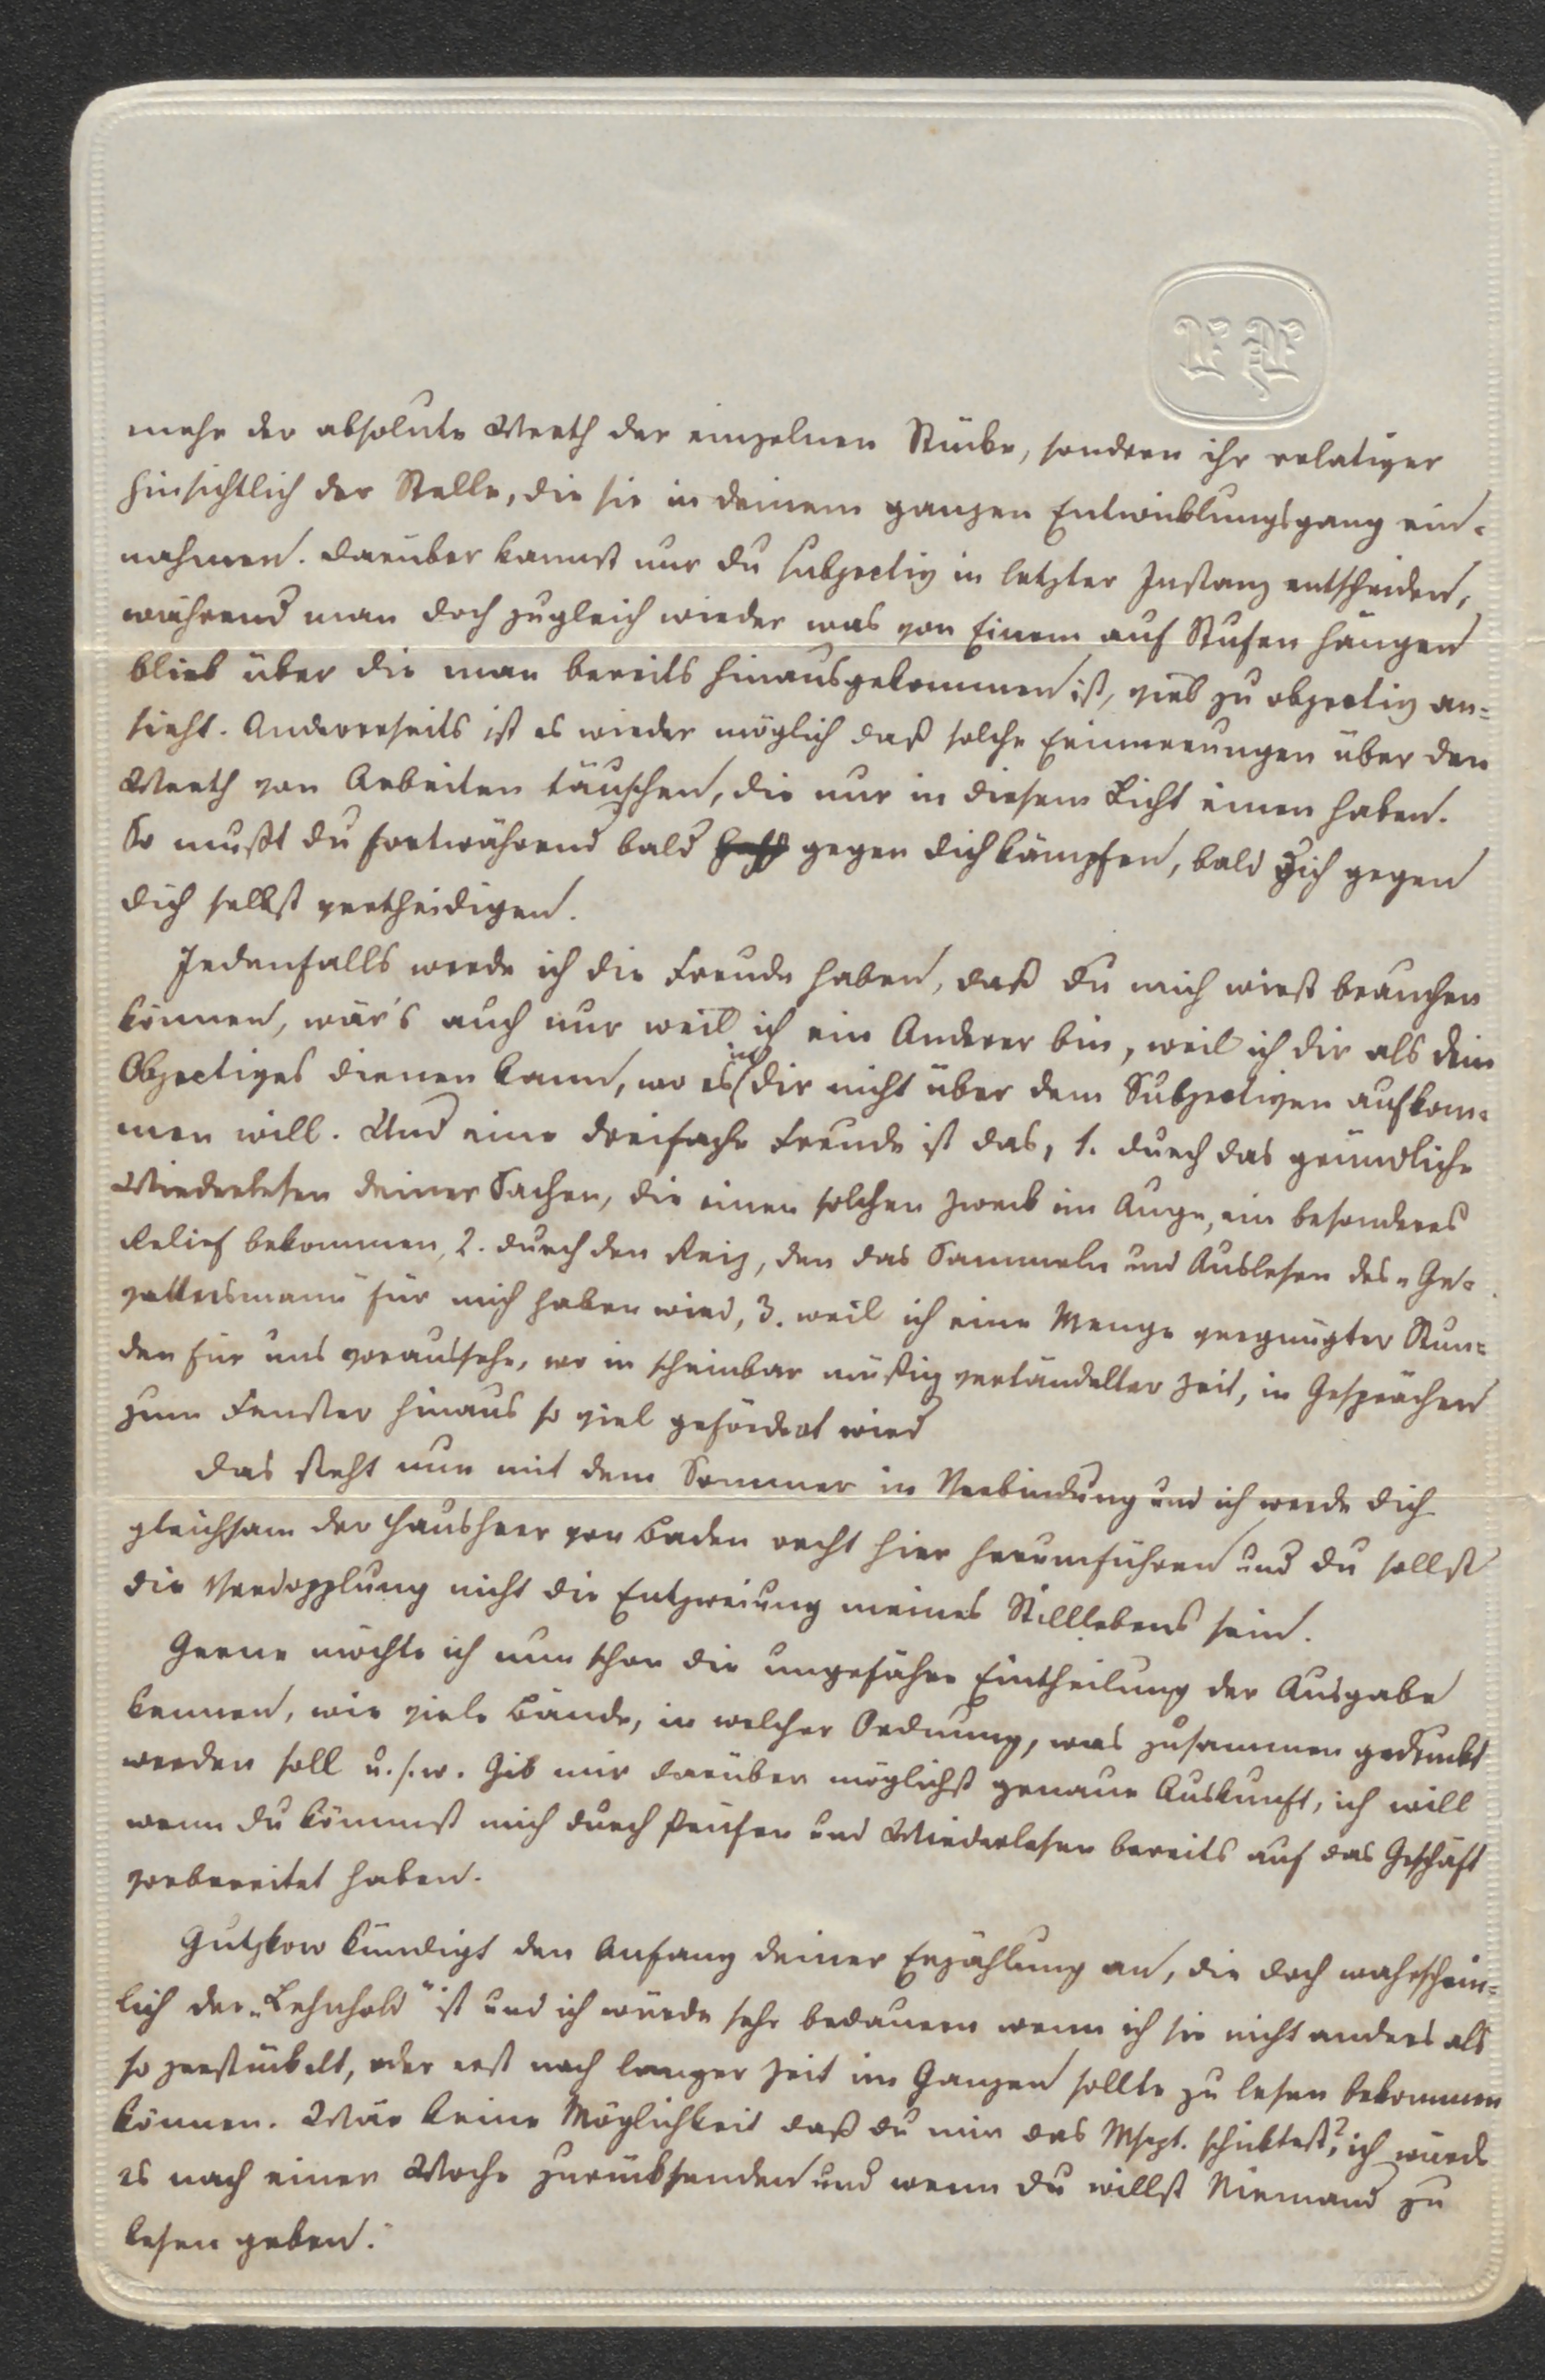 mehr der absolute Werth der einzelnen Stücke, sondern ihr relativer
hinsichtlich der Stelle, die sie in deinem ganzen Entwicklungsgang ein-
nahmen. Darüber kannst nur du subjectiv in letzter Instanz entscheiden,
während man doch zugleich wieder was von Einem auf Stufen hängen
blieb über die man bereits hinausgekommen ist, viel zu objectiv an-
sieht. Andererseits ist es wieder möglich daß solche Erinnerungen über den
Werth von Arbeiten täuschen, die nur in diesem Licht einen haben.
So mußt du fortwährend bald gegen dich kämpfen, bald dich gegen
dich selbst vertheidigen.
Jedenfalls werde ich die Freude haben, daß du mich wirst brauchen
können, wär's auch nur weil ich ein Anderer bin, weil ich dir als dein
Objectives dienen kann, wo es in dir nicht über dem Subjectiven aufkom-
men will. Und eine dreifache Freude ist das, 1. durch das gründliche
Wiederlesen deiner Sachen, die einen solchen Zweck im Auge, ein besonderes
Relief bekommen, 2. durch den Reiz, den das Sammeln und Auslesen des „Ge-
vattersmann" für mich haben wird, 3. weil ich eine Menge vergnügter Stun-
den für uns voraussehe, wo in scheinbar müßig vertändelter Zeit, in Gesprächen
zum Fenster hinaus so viel gefördert wird
Das steht nun mit dem Sommer in Verbindung und ich werde dich
gleichsam der Hausherr von Baden recht hier herumführen und du sollst
die Verdopplung nicht die Entzweiung meines Stilllebens sein.
Gerne möchte ich nun schon die ungefähre Eintheilung der Ausgabe
kennen, wie viele Bände, in welcher Ordnung, was zusammen gedruckt
werden soll u.s.w. Gib mir darüber möglichst genaue Auskunft, ich will
wenn du kömmst mich durch Prüfen und Wiederlesen bereits auf das Geschäft
vorbereitet haben.
Gutzkow kündigt den Anfang deiner Erzählung an, die doch wahrschein-
lich der „Lehnhold" ist und ich würde sehr bedauern wenn ich sie nicht anders als
so zerstückelt, oder erst nach langer Zeit im Ganzen sollte zu lesen bekommen
können. Wär keine Möglichkeit daß du mir das Mscpt. schicktest? ich würde
es nach einer Woche zurücksenden und wenn du willst Niemand zu
lesen geben.